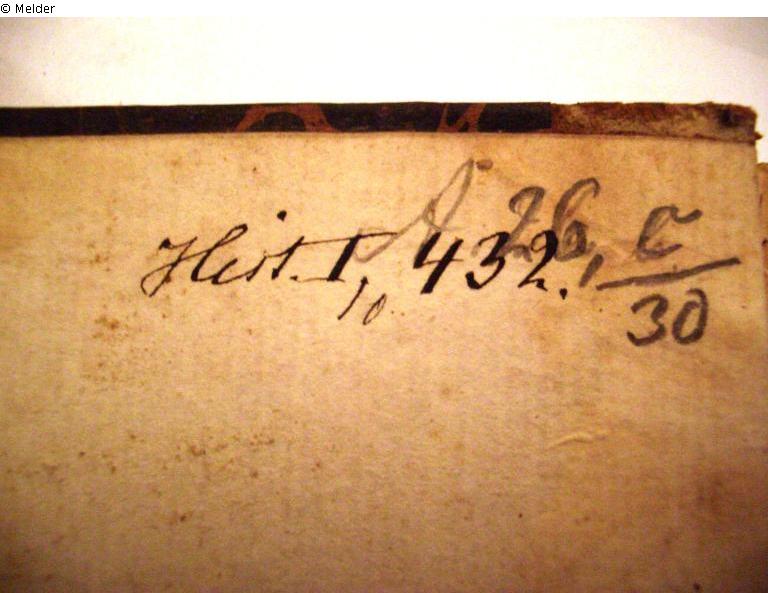 © Melder
Hist. I, 432.
10
26, c
30